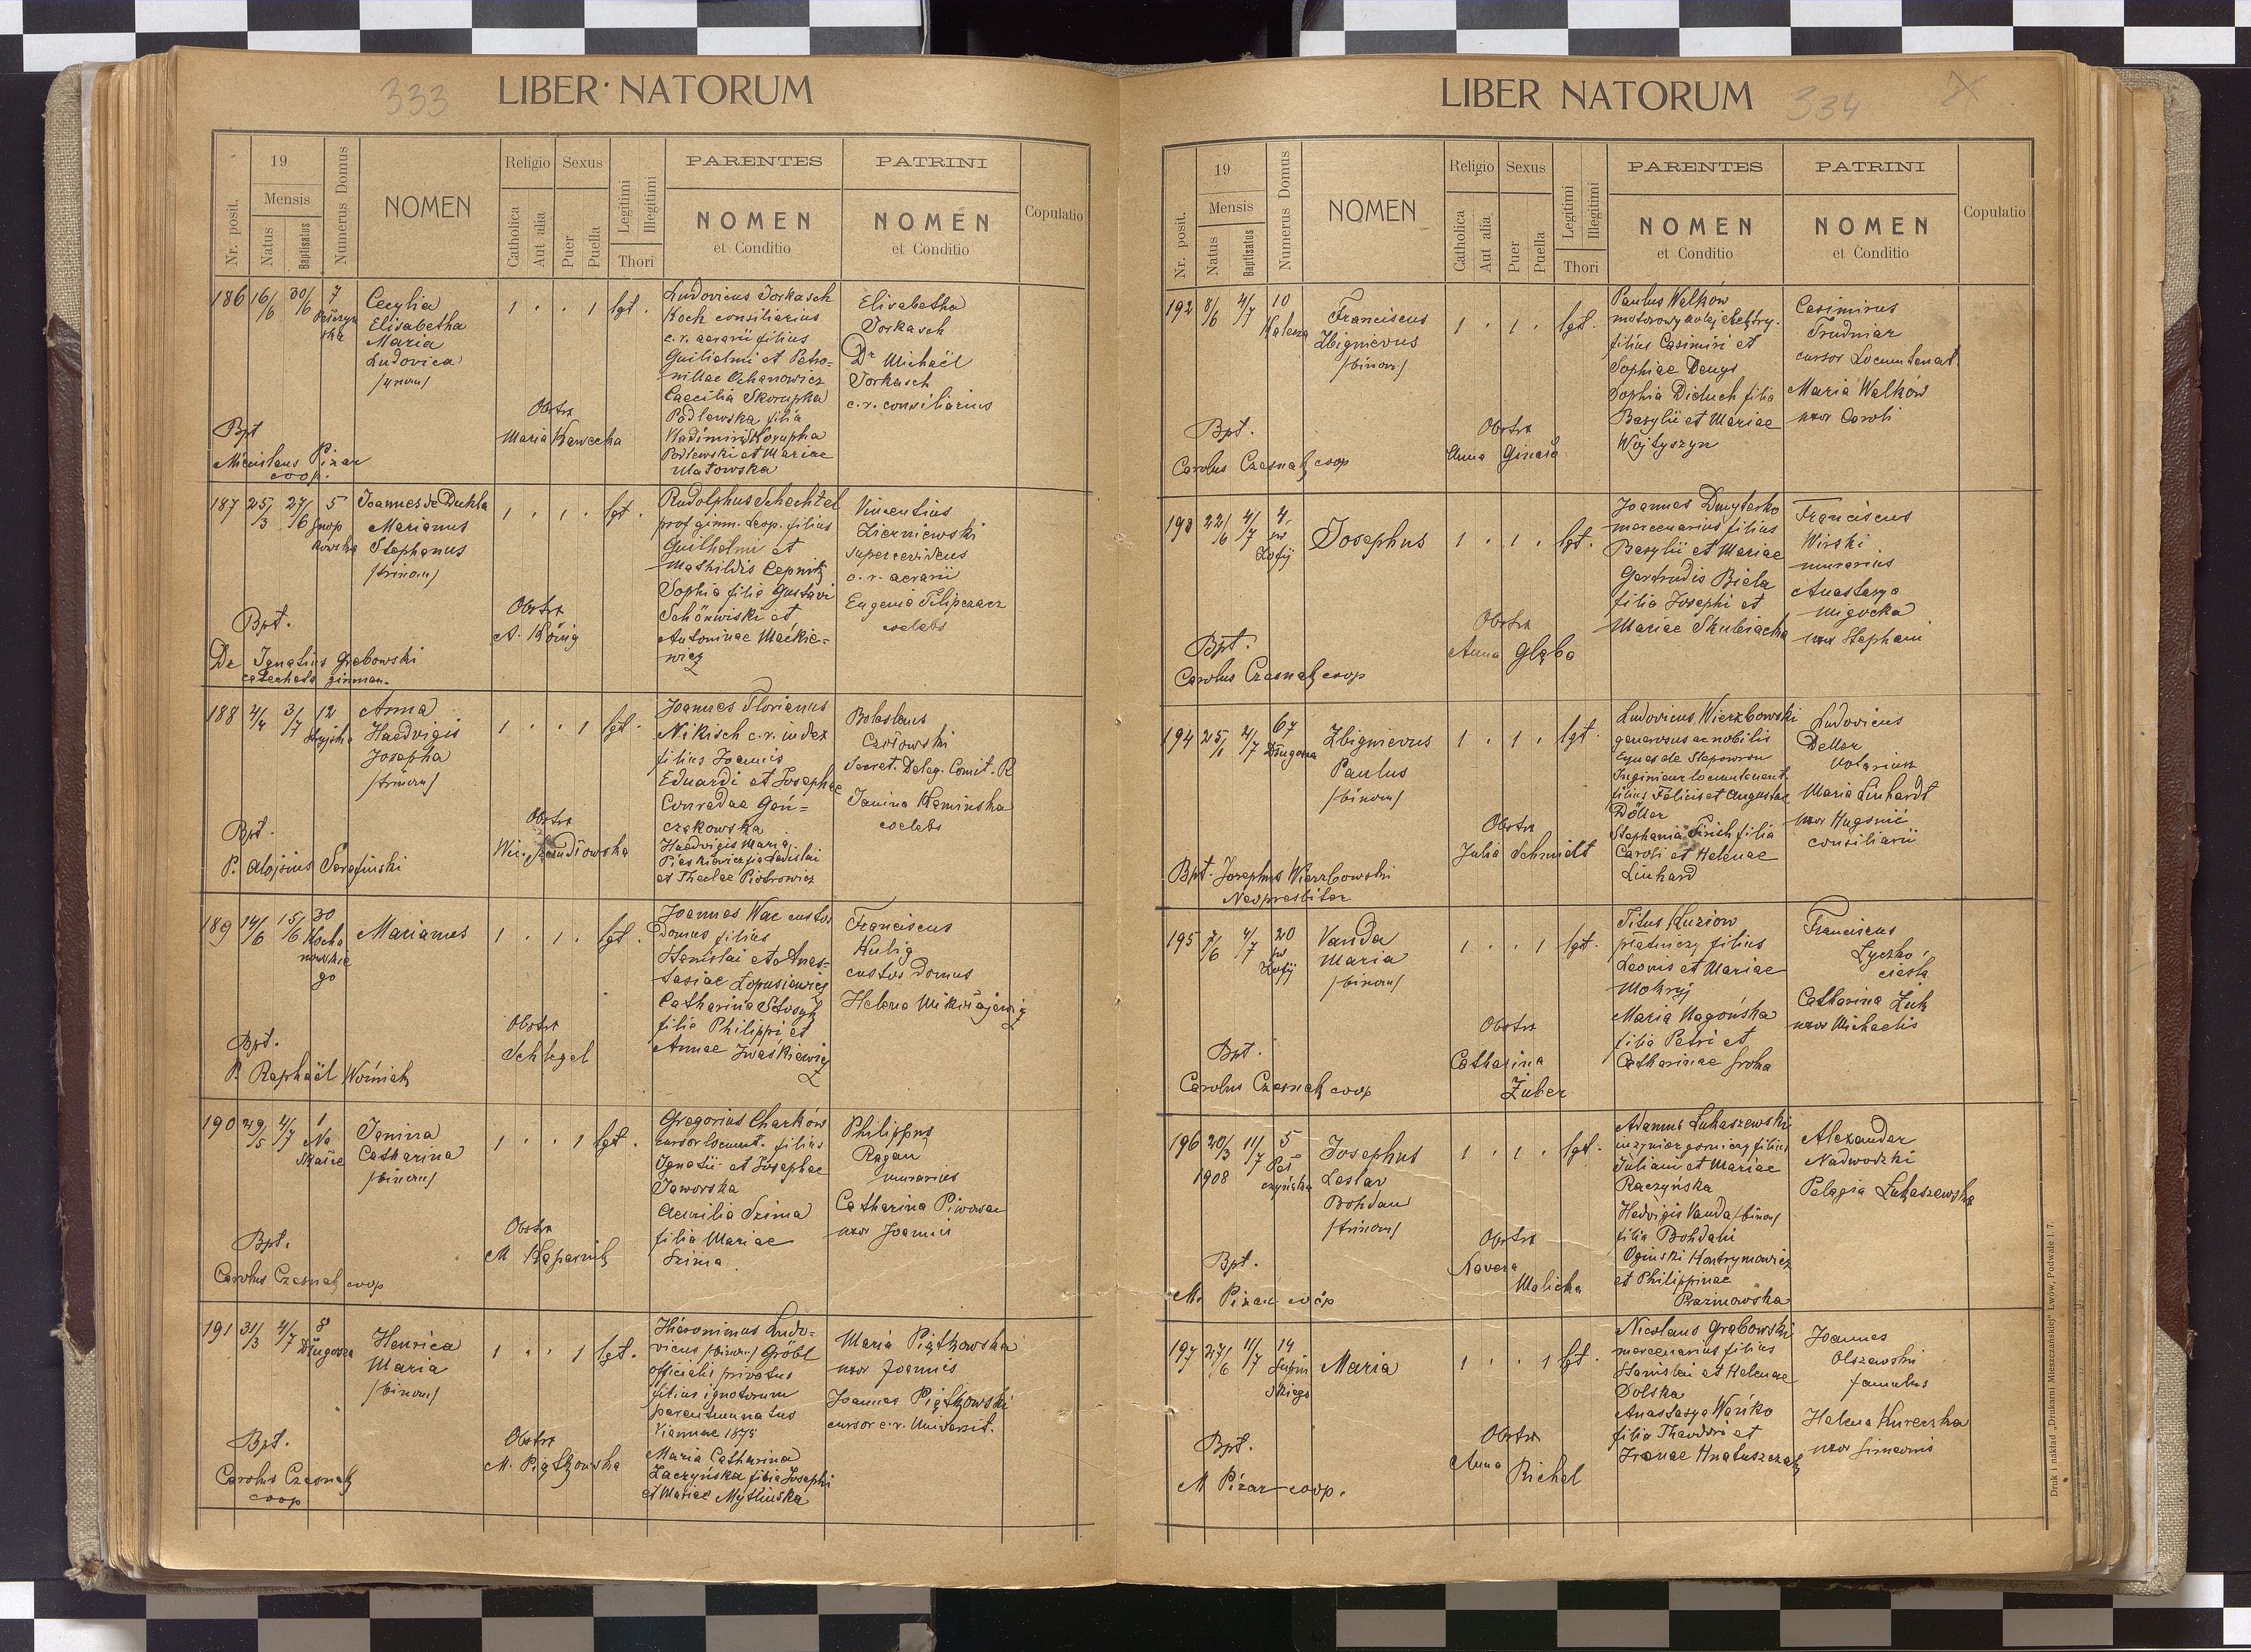 333
LIBER NATORUM
Nr. posit.
19
Mensis
Natus
Baptisatus
Numerus Domus
NOMEN
Religio
Catholica
Aut alia
Sexus
Puer
Puella
Legitimi
Illegitimi
Thori
PARENTES
NOMEN
et Conditio
PATRINI
NOMEN
et Conditio
Copulatio
186 16/6 30/6 7
Cecylia
Elisabetha
Maria
Ludovica
1 . . 1 lgt.
Ludovicus Jorkasch
Koch consiliarius
c. r. aerarii filius
Guilielmi et Petro-
nillae Ochanowicz
Caecilia Skorupka
Podlewska filia
Wladimiri Skorupka
Podlewski et Mariae
Matowska
Elisabetha
Jorkasch
Dr Michaël
Jorkasch
c. r. consiliarius
Obstrx
Maria Kawecka
Bpt
Miecislaus Pizar
coop.
187 25/3 27/6 5
Joannes de Dukla
Marianus
Stephanus
/trinom/
1 . 1 . lgt.
Rudolphus Schechtel
prof. gimn. Leop. filius
Guilhelmi et
Mathildis
Sophia filia Gustavi
Schönwiski et
Antoninae Mackie-
wicz
Vincentius
Zierniewski
c. r. aerarii
Eugenia Filipczacz
coelebs
Obstrx
A. König
Bpt.
Dr Ignatius Grabowski
catecheta gimnas.
188 4/4 3/7 12
Stryjska
Anna
Haedvigis
Josepha
/trinom/
1 . . 1 lgt.
Joannes Florianus
Nikisch c. r. iudex
filius Joannis
Eduardi et Josephae
Conradae Goń-
czakowska
Haedvigis Maria
Pieskiewicz fia Ladislai
et Theclae Piotrowicz
Boleslaus
Czołowski
Secret. Deleg. Comit. R
Janina Kaminska
coelebs
Obstrx
Bpt.
P. Alojsius Serafinski
189 14/6 15/6 30
Kocha
nowskie
go
Marianus
1 . 1 . lgt.
Joannes Wac custos
domus filius
Stanislai et Anas-
tasiae Łopusiewicz
Catharina
filia Philippi et
Annae Iwaskiewicz
Franciscus
Kulig
custos domus
Helena Mikołajewicz
Obstrx
Schlegel
Bpt.
P. Raphaël Woźniak
190 29/5 4/7 1
Na
Skałce
Janina
Catharina
/binom/
1 . . 1 lgt.
Gregorius Charków
cursor locumt. filius
Ignatii et Josephae
Jaworska
Aemilia Szima
filia Mariae
Szima
Philippus
Ragan
murarius
Catharina Piwowar
uxor Joannis
Obstrx
M Kaparnik
Bpt.
Carolus Czesnak coop
191 31/3 4/7 8
Długosza
Henrica
Maria
/binom/
1 . . 1 lgt.
Hieronimus Ludo-
vicus /binom/ Gröbl
officialis privatus
filius ignotorum
parentum natus
Viennae 1875
Maria Catharina
Zaczyńska filia Josephi
et Mariae Myślinska
Maria Piątkowska
uxor Joannis
Joannes Piątkowski
cursor c. r. Universit.
Obstrx
M. Piątkowska
Bpt.
Carolus Czesnak
coop
LIBER NATORUM
334
Nr. posit.
19
Mensis
Natus
Baptisatus
Numerus Domus
NOMEN
Religio
Catholica
Aut alia
Sexus
Puer
Puella
Legitimi
Illegitimi
Thori
PARENTES
NOMEN
et Conditio
PATRINI
NOMEN
et Conditio
Copulatio
192 8/6 4/7 10
Kalecza
Franciscus
Zbignievus
/binom/
1 . 1 . lgt.
Paulus Walków
motorowy kolej elektry.
filius Casimiri et
Sophiae Denys
Sophia Diduch filia
Basylii et Mariae
Wojtyszyn
Casimirus
Trudniar
cursor Locumtenent.
Maria Walków
uxor Caroli
Obstrx
Anna
Bpt.
Carolus Czesnak coop
193 22/6 4/7 4.
św
Zofij
Josephus
1 . 1 . lgt.
Joannes Dmyterko
mercenarius filius
Basylii et Mariae
Gertrudis Biela
filia Josephi et
Mariae Skubiacka
Franciscus
Wirski
murarius
Anastasya
Migocka
uxor Stephani
Obstrx
Anna Głąba
Bpt.
Carolus Czesnak coop
194 25/1 4/7 67
Długosza
Zbignievus
Paulus
/binom/
1 . 1 . lgt.
Ludovicus Wierzbowski
generosus ac nobilis
Eques de Slepowron
Inginieur locumtenent.
filius Felicis et Augustae
Döller
Stephania Tirich filia
Caroli et Helenae
Linhard
Ludovicus
Deller
Notarius
Maria Linhardt
uxor Hugonii
consiliarii
Obstrx
Julia Schmidt
Bpt. Josephus Wierzbowski
Neopresbiter
195 7/6 4/7 20
św
Zofij
Vanda
Maria
/binom/
1 . . 1 lgt.
Titus Kuziow
płatniczy filius
Leonis et Mariae
Mokryj
Maria Nagóńska
filia Petri et
Catharinae Groka
Franciscus
Łyczko-
ciesla
Catharina Żuk
uxor Michaelis
Obstrx
Catharina
Zuber
Bpt.
Carolus Czesnak coop
196 20/3 11/7 5
1908 Peł
czyńska
Josephus
Leslav
Bohdan
/trinom/
1 . 1 . lgt.
Adamus Łukaszewski
inzynier górniczy filius
Juliani et Mariae
Raczyńska
Hedvigis Vanda /binom/
filia Bohdani
Oginski Kontrymowicz
et Philippinae
Prazmowska
Alexander
Nadwodzki
Pelagia Łukaszewska
Obstrx
Malicka
Bpt.
M. Pizar coop
197 27/6 11/7 14
Maria
1 . . 1 lgt.
Nicolaus Grabowski
mercenarius filius
Stanislai et Helenae
Dolska
Anastasya Wańko
filia Theodori et
Irenae Hnatuszczak
Joannes
Olszewski
famulus
Helena Kurerzka
uxor Simeonis
Obstrx
Anna Richel
Bpt.
M Pizar coop.
Druk i nakład „Drukarni Mieszczańskiej“ Lwów, Podwale l. 7.